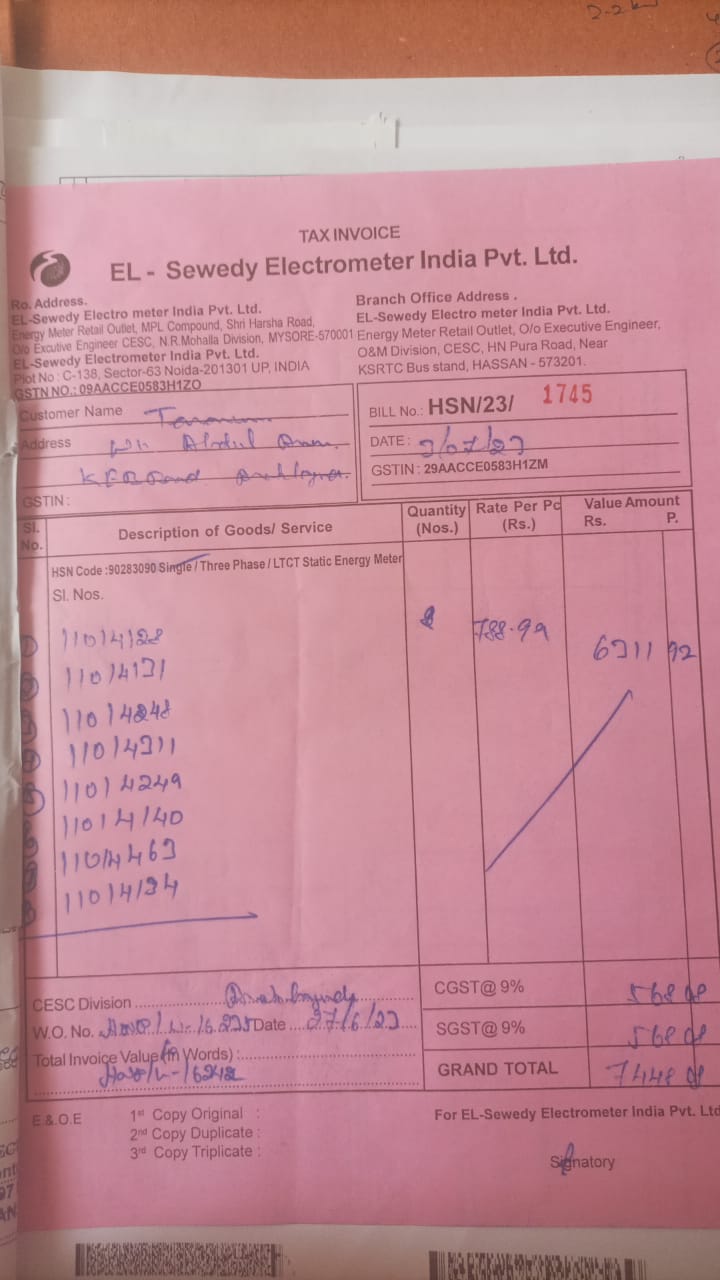 TAX INVOICE
EL - Sewedy Electrometer India Pvt. Ltd.
Ro. Address.
EL-Sewedy Electro meter India Pvt. Ltd.
Energy Meter Retail Outlet, MPL Compound, Shri Harsha Road,
O/o Excutive Engineer CESC, N.R.Mohalla Division, MYSORE-570001
EL-Sewedy Electrometer India Pvt. Ltd.
Plot No : C-138, Sector-63 Noida-201301 UP, INDIA
GSTN NO.: 09AACCE0583H1ZO
Branch Office Address .
EL-Sewedy Electro meter India Pvt. Ltd.
Energy Meter Retail Outlet, O/o Executive Engineer,
O&M Division, CESC, HN Pura Road, Near
KSRTC Bus stand, HASSAN - 573201.
Customer Name
Address
GSTIN :
BILL No.: HSN/23/ 1745
DATE : 3/07/23
GSTIN : 29AACCE0583H1ZM
Sl. No. Description of Goods/ Service Quantity (Nos.) Rate Per Pc (Rs.) Value Amount Rs. P.
HSN Code :90283090 Single / Three Phase / LTCT Static Energy Meter
Sl. Nos.
8 788.99 6311 92
11014128
11014131
11014248
11014311
11014249
11014140
11014463
11014134
CESC Division
W.O. No. Date 27/6/23
Total Invoice Value (in Words) :
CGST@ 9% 568 08
SGST@ 9% 568 08
GRAND TOTAL 7448 08
E.&.O.E
1st Copy Original :
2nd Copy Duplicate :
3rd Copy Triplicate :
For EL-Sewedy Electrometer India Pvt. Ltd
Signatory